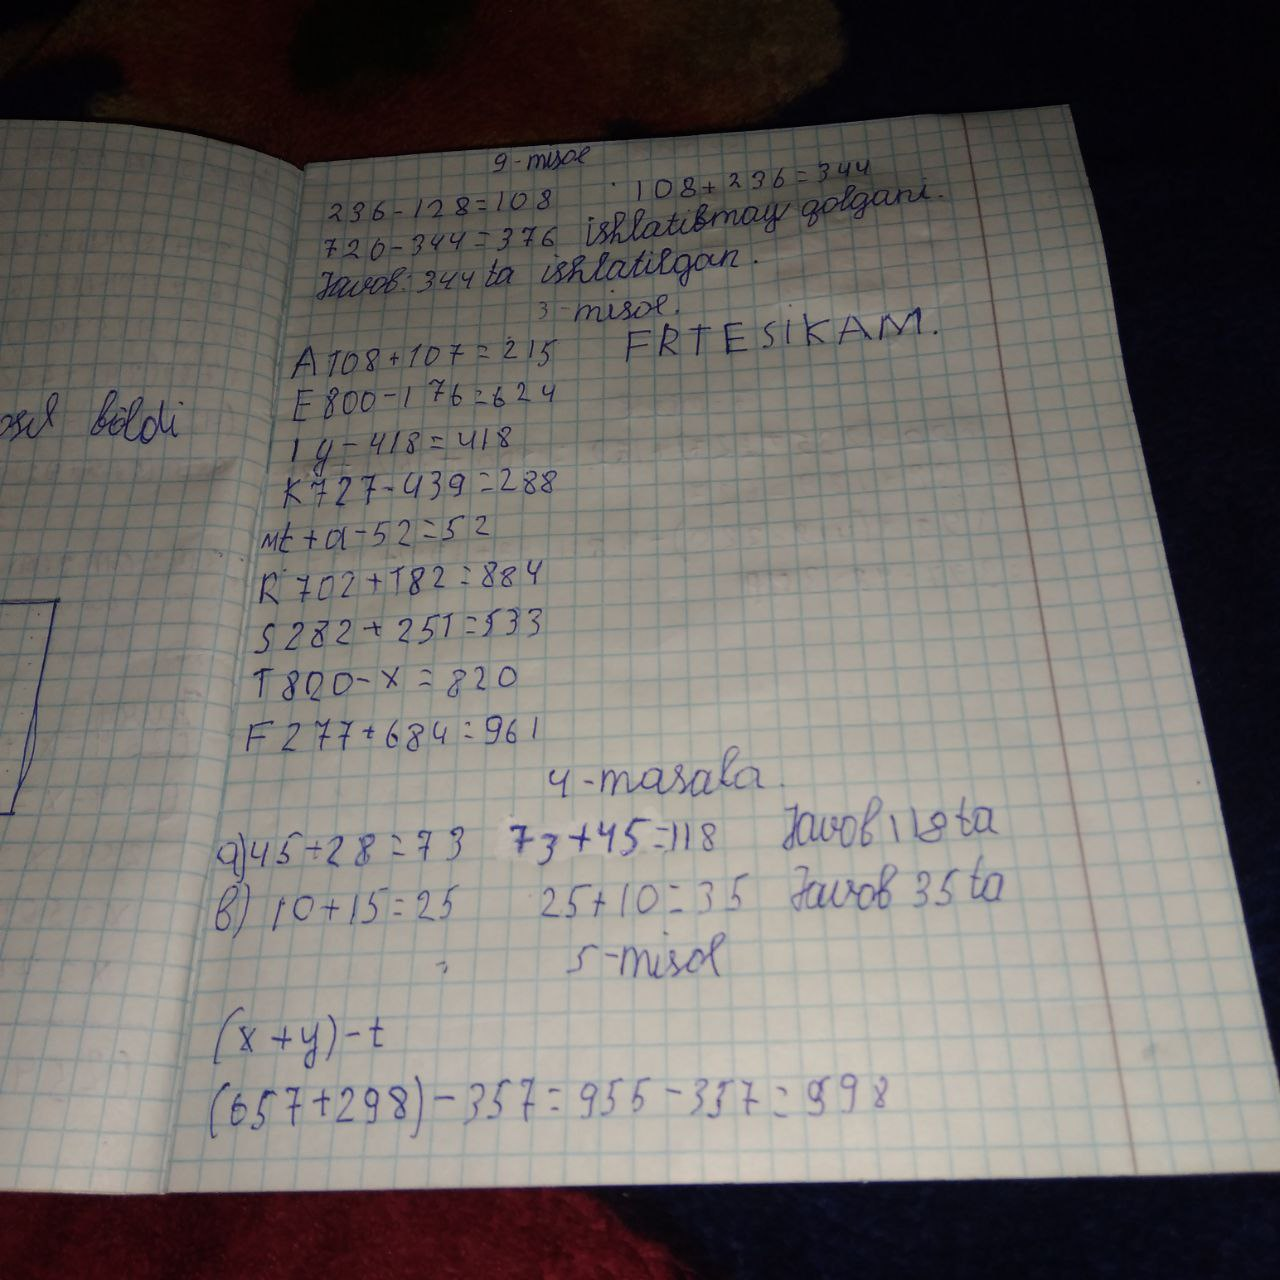 osil bo'ldi
9-misol
236-128=108 108+236=344
720-344=376 ishlatilmay qolgani.
Javob: 344 ta ishlatilgan.
3-misol.
A 108+107=215 FRTESIKAM.
E 800-176=624
I y-418=418
K 727-439=288
M t+a-52=52
R 702+182=884
S 282+251=533
T 820-x=820
F 277+684=961
4-masala.
a) 45+28=73 73+45=118 Javob 118 ta
b) 10+15=25 25+10=35 Javob 35 ta
5-misol
(x+y)-t
(657+298)-357=955-357=598